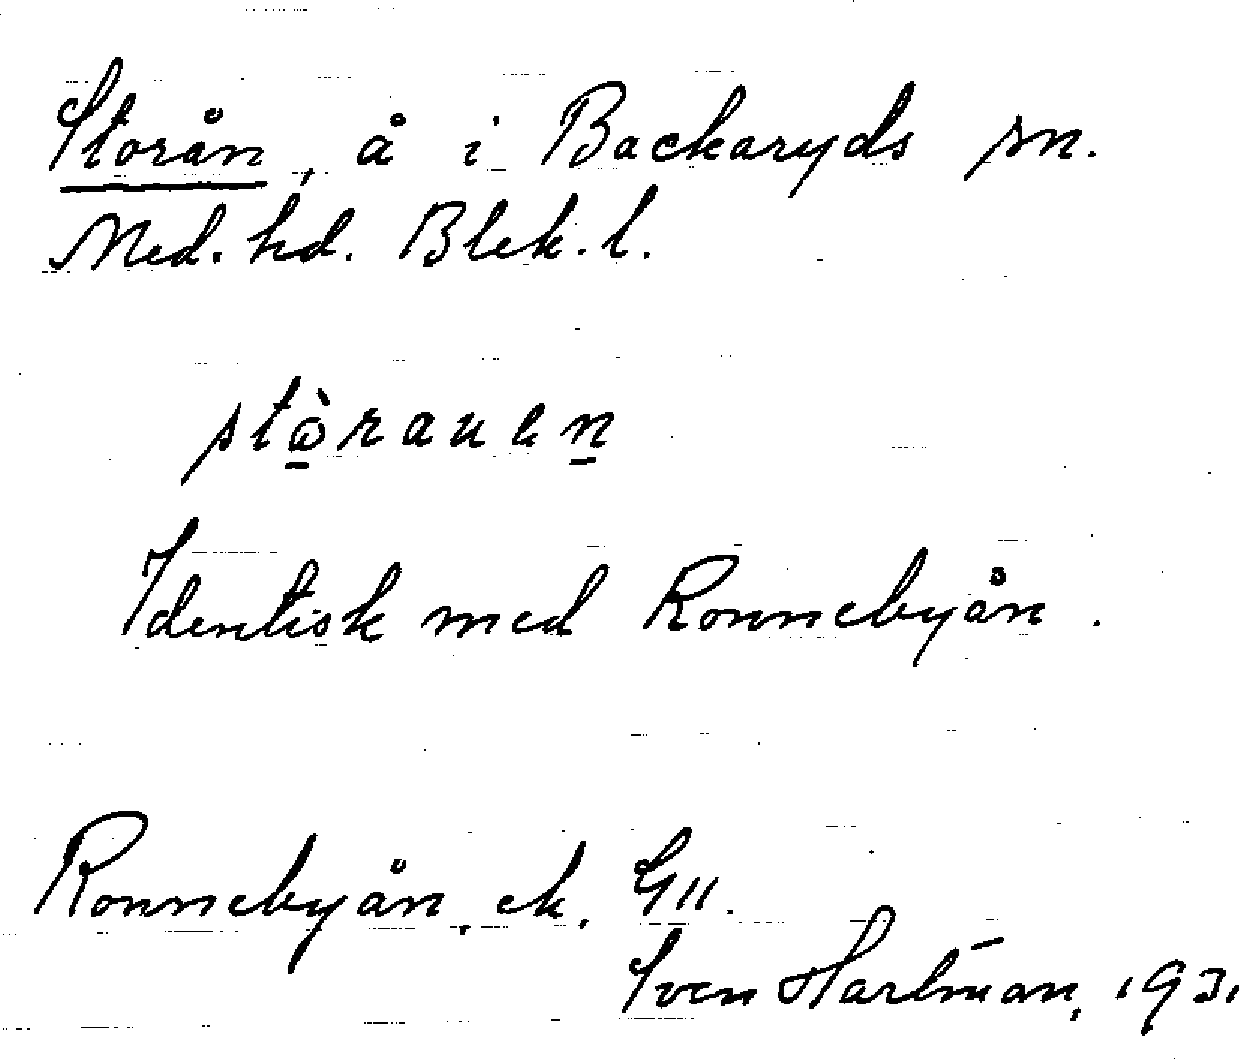 Storån, å i Backaryds sn.
Med. hd. Blek. l.
stòrauen
Identisk med Ronnebyån.
Ronnebyån, ek. G11.
Sven Hartman, 1931